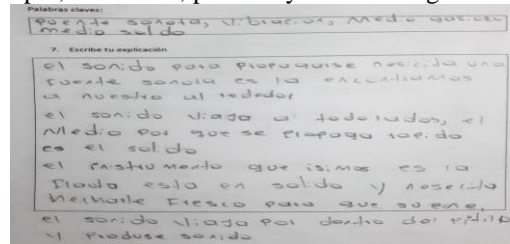 Palabras claves:
fuente sonora, vibracion, medio
medio solido
7. Escribe tu explicación
el sonido para propaguise nesecita una
fuente sonora es la encontramos
a nuestro alrededor
el sonido viaja a todolados, el
Medio por que se propaga rapido
es el solido
el instrumento que isimos es la
flauta esta en solido y nesecita
hecharle fresco para que suene,
el sonido viaja por dentro del pitillo
y produse sonido